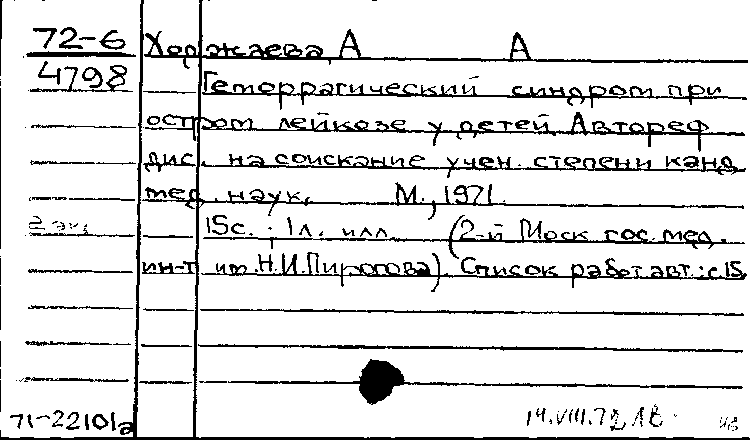 72-6 Хоржаева А А
4798 Геморрагический синдром при
остром лейкозе у детей Автореф
дис. на соискание учен. степени канд
мед. наук, М., 1971.
2 экз. 15с.; 1л. илл. (2-й Моск гос. мед.
ин-т им. Н.И.Пирогова) Список работ авт.: с.15
71-22101а 14.VIII.72